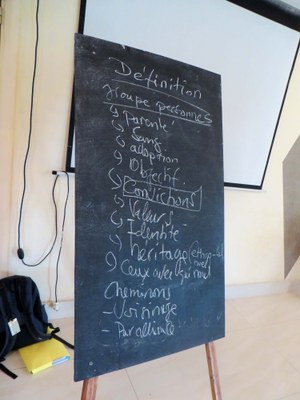 Définition
Groupe personnes
Parenté
Sang
adoption
Objectif.
Conditions
Valeurs
Identité
héritage
Ceux avec qui
Cheminons
- Voisinage
- Parallèle